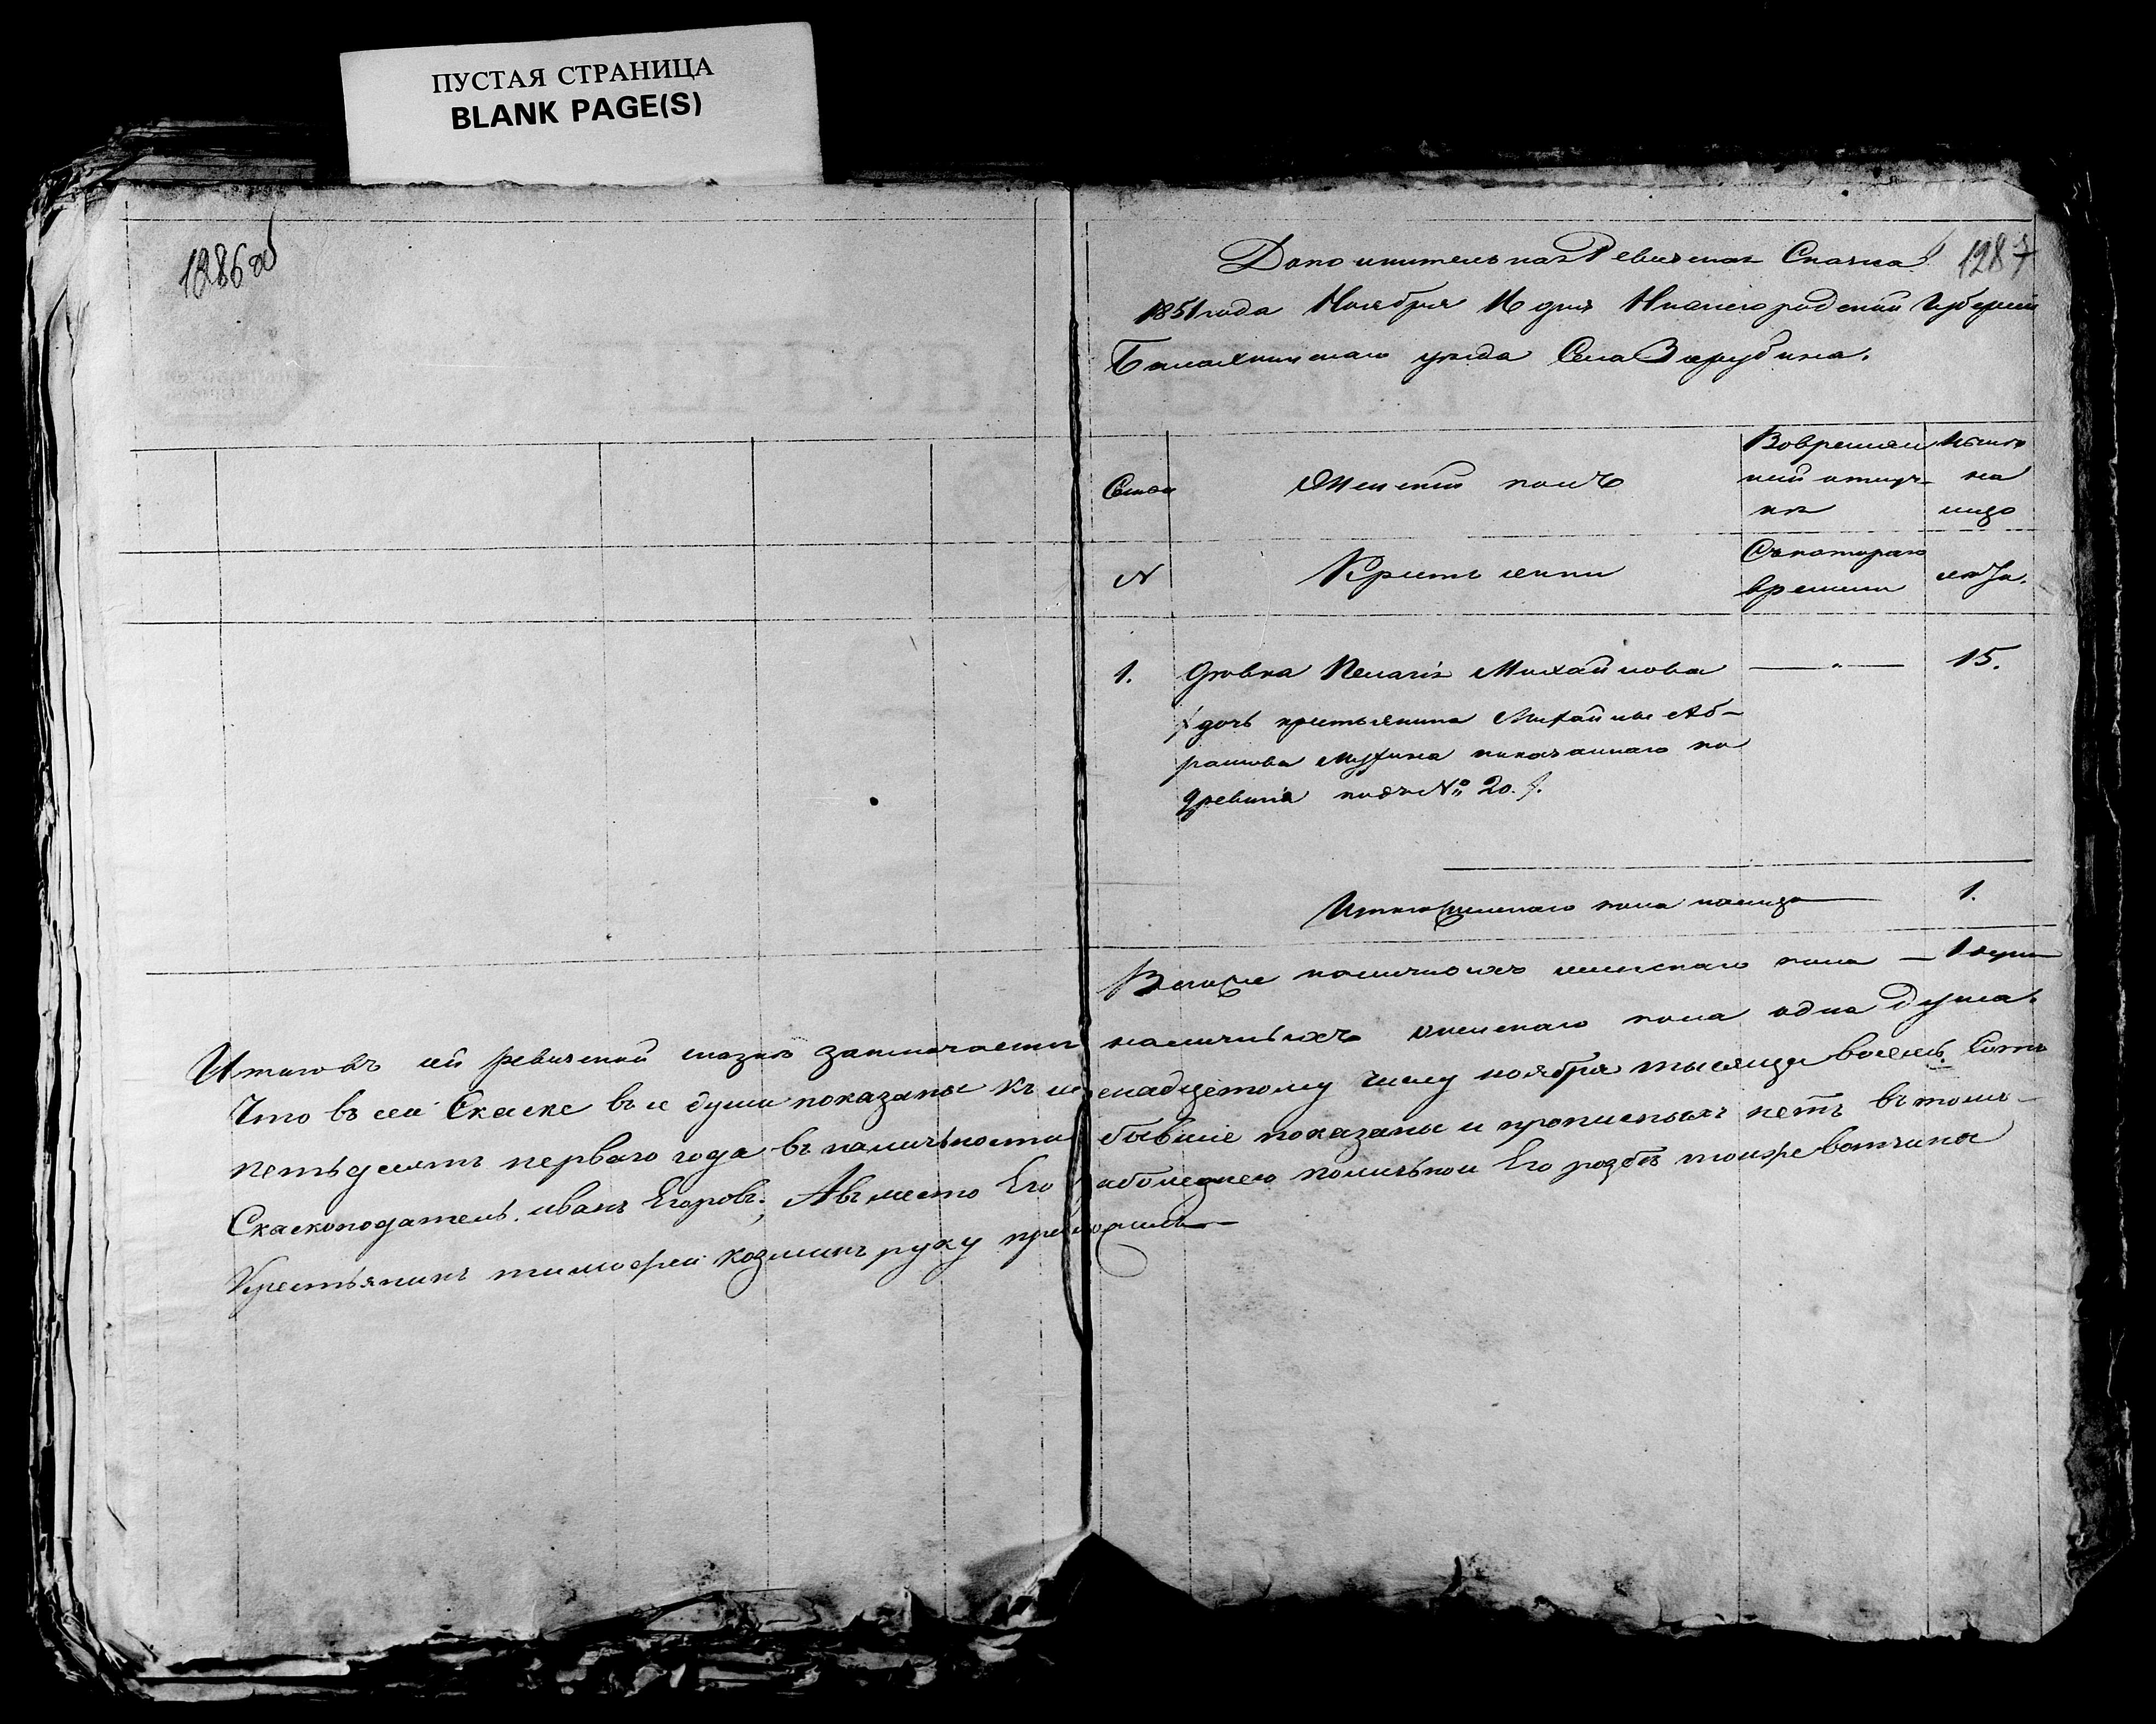 ПУСТАЯ СТРАНИЦА
BLANK PAGE(S)
1286 об
1287
Дополнительная Ревизская Скаска
1851 года Ноября 16 дня Нижегородской Губернии
Балахнинскаго уезда Села Зарубина.
Семьи
Женский полъ
Вовременной отлучке
Ныне на лицо
N
Крестьянки
Съ котораго времени
лета.
1. Девка Пелагія Михайлова — „ — 15.
/дочь крестьянина Михайлы Аб-
рамова Мухина показаннаго по
Ревизіи подъ № 20./.
Итого женскаго пола налицо — 1.
Всего же наличныхъ женскаго пола — 1 душа
Итого въ сей ревизской сказке заключается наличныхъ женскаго пола одна душа.
Что въ сей Скаске все души показаны къ шезнадцетому числу ноября тысяща восемь Сотъ
петьдесятъ перваго года въ наличьности бывшие показаны и прописныхъ нетъ въ томъ
Скаскоподатель иванъ Егоровъ, А вместо Его
Его розбе тоиже вотчины
Крестьянинъ тимофеи козминъ руку приложилъ